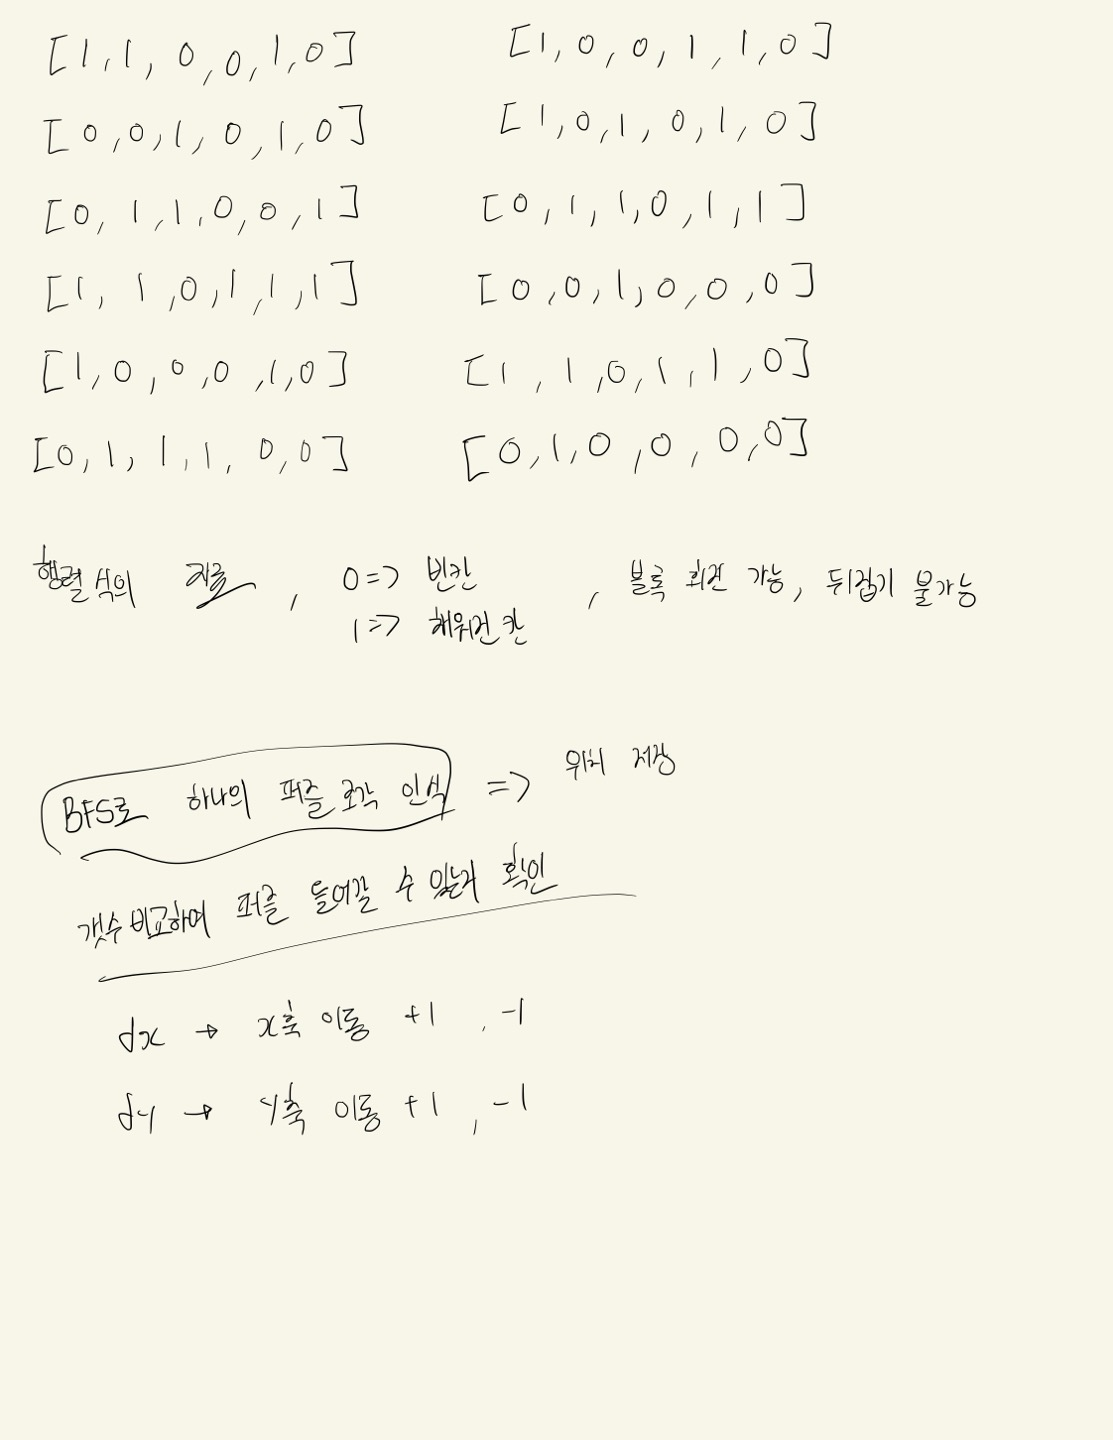 [1,1,0,0,1,0] [1,0,0,1,1,0]
[0,0,1,0,1,0] [1,0,1,0,1,0]
[0,1,1,0,0,1] [0,1,1,0,1,1]
[1,1,0,1,1,1] [0,0,1,0,0,0]
[1,0,0,0,1,0] [1,1,0,1,1,0]
[0,1,1,1,0,0] [0,1,0,0,0,0]
행렬식의 자료, 0=> 빈칸, 블록 회전 가능, 뒤집기 불가능
1=> 채워진 칸
BFS로 하나의 퍼즐 조각 인식 => 위치 저장
갯수 비교하여 퍼즐 들어갈 수 있는가 확인
dx → x축 이동 +1, -1
dy → y축 이동 +1, -1